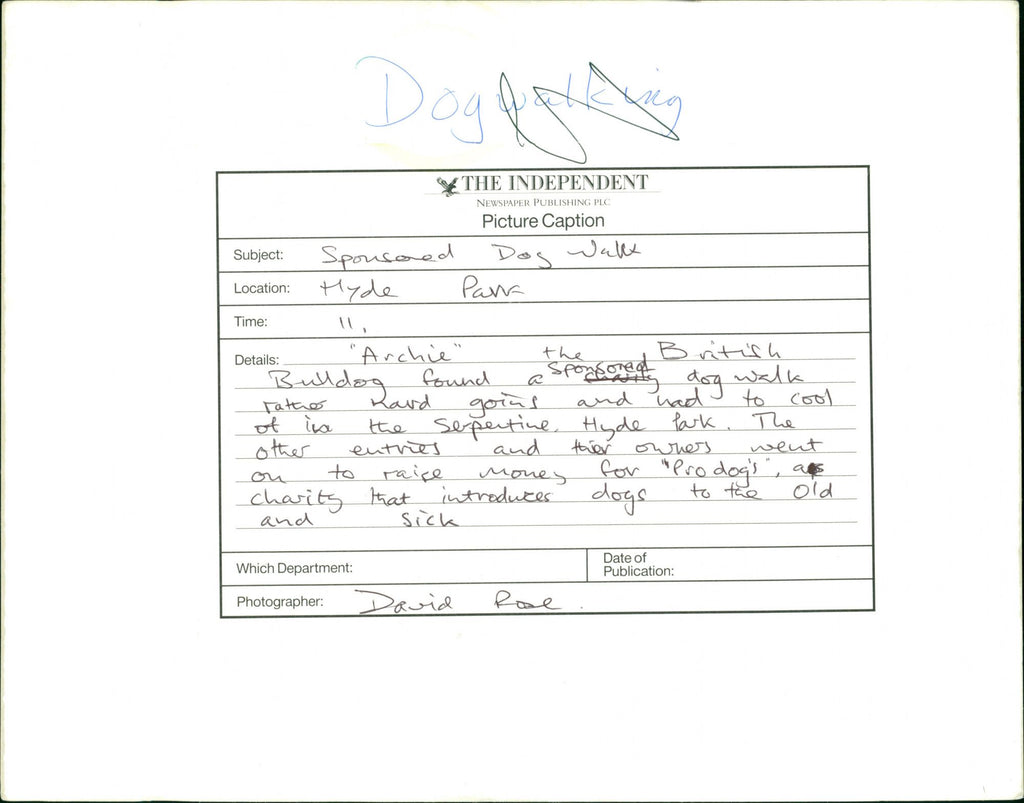 Dog walking
THE INDEPENDENT
NEWSPAPER PUBLISHING PLC
Picture Caption
Subject: Sponsored Dog Walk
Location: Hyde Park
Time: 11,
Details: "Archie" the British
Bulldog found a sponsored charity dog walk
rather hard going and had to cool
of in the Serpentine, Hyde Park. The
other entries and thier owners went
on to raise money for "Pro dog's", a
charity that introduces dogs to the Old
and Sick
Which Department:
Date of
Publication:
Photographer: David Rose.